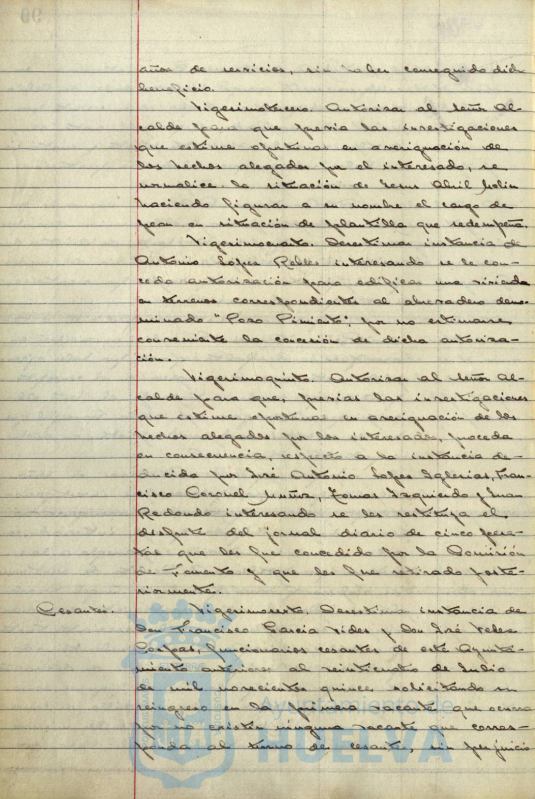 años de servicios, sin haber conseguido dicho
beneficio.
Vigesimotercero. Autorizar al Señor Al-
calde para que previa las investigaciones
que estime oportunas en averiguación de
los hechos alegados por el interesado, se
normalice la situación de Jesus Abril
haciendo figurar a su nombre el cargo de
peon en situación de plantilla que desempeña.
Vigesimocuarto. Desestimar instancia de
Antonio Lopez Robles interesando se le con-
ceda autorización para edificar una vivienda
en terrenos correspondientes al abrevadero deno-
minado "Pozo Pimiento", por no estimarse
conveniente la concesión de dicha autoriza-
ción.
Vigesimoquinto. Autorizar al Señor Al-
calde para que, previas las investigaciones
que estime oportunas en averiguación de los
hechos alegados por los interesados, proceda
en consecuencia, respecto a la instancia de-
ducida por José Antonio Lopez Iglesias, Fran-
cisco Coronel Muñiz, Tomas Izquierdo y Juan
Redondo interesando se les restituya el
disfrute del jornal diario de cinco pese-
tas que les fue concedido por la Comisión
de Fomento y que les fue retirado poste-
riormente.
Cesantes. Vigesimosexto. Desestimar instancia de
Don Francisco Garcia Vides y Don José
funcionarios cesantes de este Ayunta-
miento anteriores al veinticuatro de Julio
de mil novecientos quince solicitando su
reingreso en la primera vacante que ocurra
por no existir ninguna vacante que corres-
ponda al turno de cesante, sin perjuicio
Ayuntamiento de
HUELVA